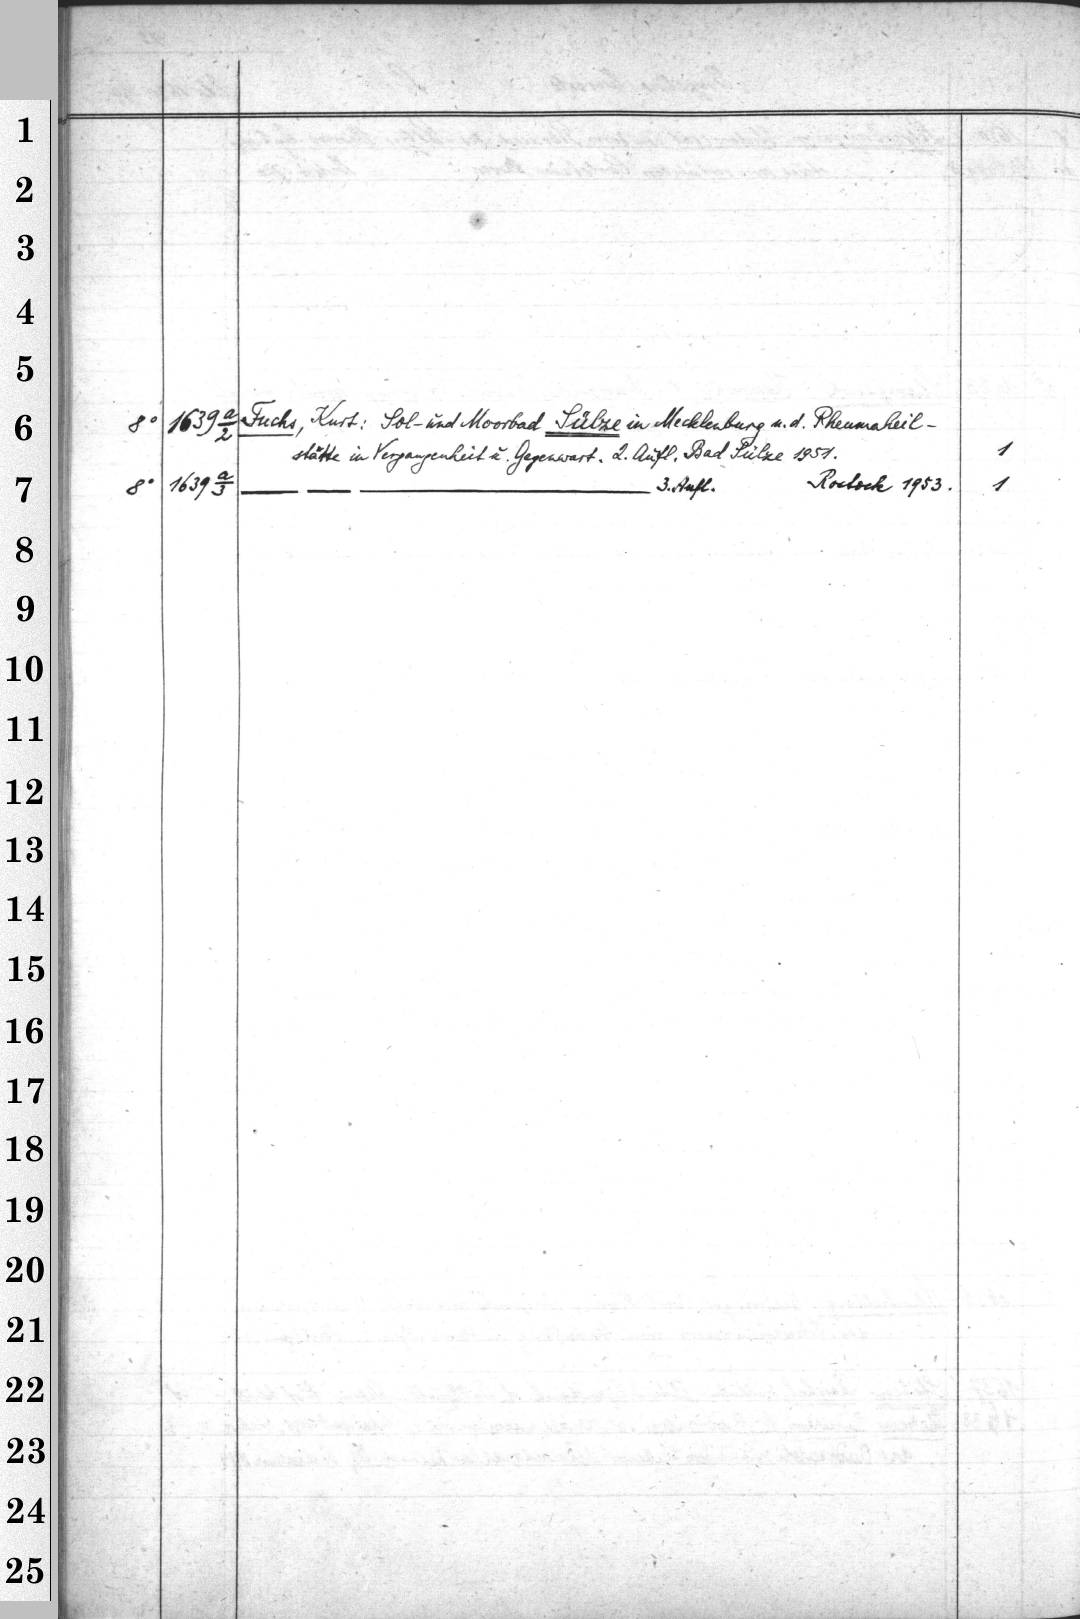 1
2
3
4
5
6
8° 1639 a/2 Fuchs, Kurt: Sol- und Moorbad Sülze in Mecklenburg u. d. Rheumaheil-
stätte in Vergangenheit u. Gegenwart. 2. Aufl. Bad Sülze 1951. 1
7
8° 1639 a/3 — — — 3. Aufl. Rostock 1953. 1
8
9
10
11
12
13
14
15
16
17
18
19
20
21
22
23
24
25